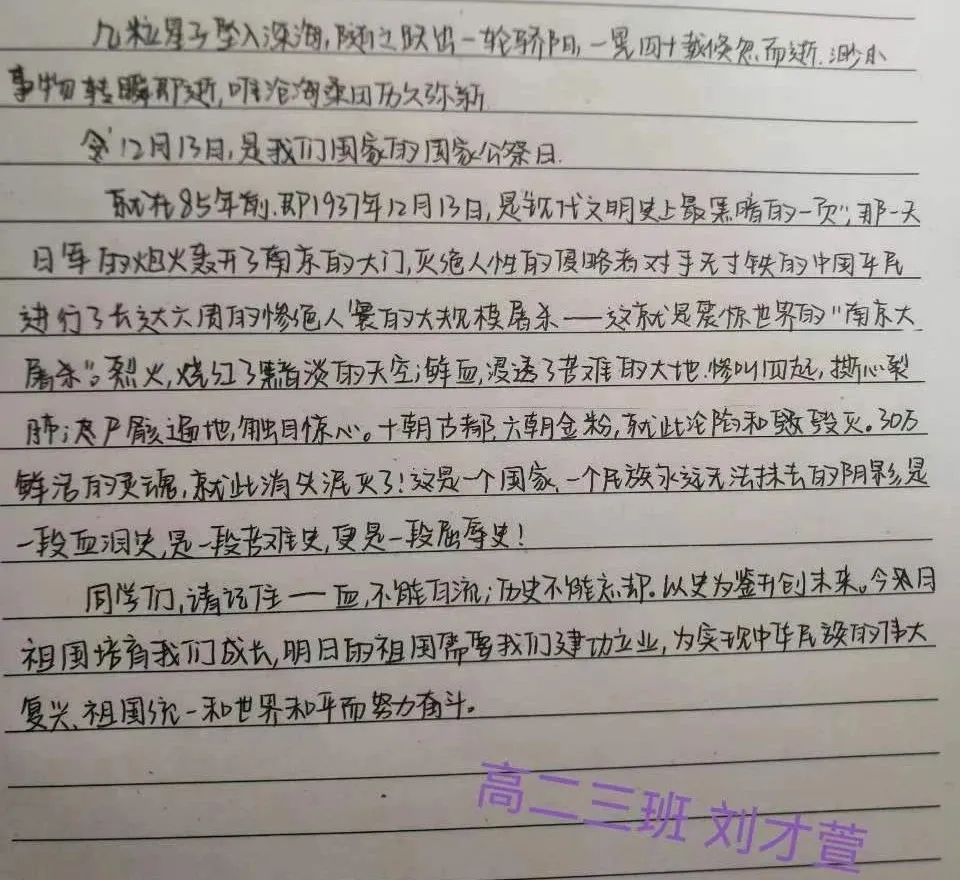 几粒星子坠入深海,随之跃出一轮骄阳,一晃四十载倏忽而逝.渺小
事物转瞬即逝,唯沧海桑田历久弥新
今12月13日,是我们国家的国家公祭日.
就在85年前.即1937年12月13日,是"现代文明史上最黑暗的一页",那一天
日军的炮火轰开了南京的大门,灭绝人性的侵略者对手无寸铁的中国军民
进行了长达六周的惨绝人寰的大规模屠杀——这就是震惊世界的"南京大
屠杀"。烈火,烧红了黯淡的天空;鲜血,浸透了苦难的大地.惨叫四起,撕心裂
肺;尸骸遍地,触目惊心。十朝古都,六朝金粉,就此沦陷和毁灭。30万
鲜活的灵魂,就此消失泯灭了!这是一个国家、一个民族永远无法抹去的阴影,是
一段血泪史,是一段苦难史,更是一段屈辱史!
同学们,请记住——血,不能白流;历史不能忘却。以史为鉴开创未来。今日
祖国培育我们成长,明日的祖国需要我们建功立业,为实现中华民族的伟大
复兴、祖国统一和世界和平而努力奋斗。
高二三班 刘才萱